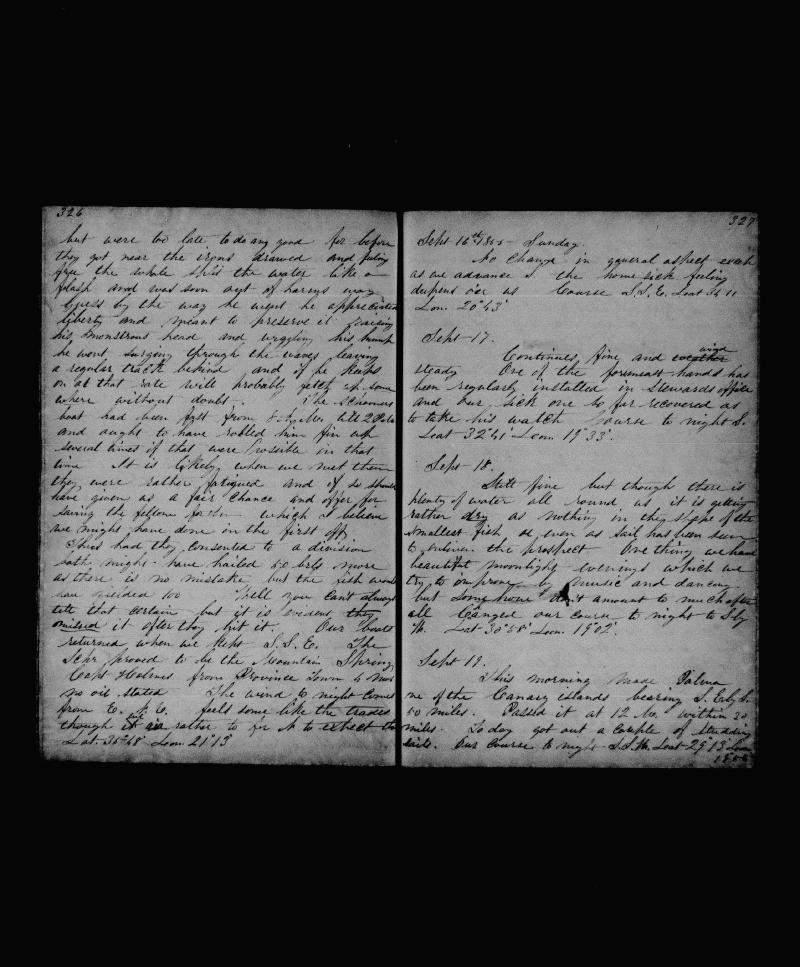 326
but were too late to do any good for before
they got near the irons drawed and feeling
free the whale split the water like a
flash and was soon out of harms way
Guess by the way he went he appreciated
liberty and meant to preserve it raising
his monstrous head and wiggling his hump
he went surging through the waves leaving
a regular track behind and if he keeps
on at that rate will probably fetch up some
where without doubt. The schooners
boat had been fast from till 2 P.M.
and ought to have robbed him fin up
several times if that were possible in that
time It is likely when we met them
they were rather fatigued and if so should
have given us a fair chance and offer for
saving the fellow which I believe
we might have done in the first off
Thus had they consented to a division
both might have hailed 50 brls more
as there is no mistake but the fish would
have yielded 100 Well you can't always
tell that certain but it is evident they
omissed it after they hit it. Our boats
returned when we kept S.S.E. The
Schr. proved to be the Mountain Spring
Capt Holmes from Province Town 4 mos
no oil stated The wind to night comes
from E. N. E. feels some like the trades
though it is rather to far N to expect the
Lat. 35°48' Lon. 21°13'
327
Sept 16th 1855 - Sunday.
No change in general aspect except
as we advance S. the home sick feeling
deepens o'er us Course S.S.E. Lat 34°11
Lon. 20°43'
Sept 17.
Continues fine and weather wind
steady One of the foremast hands has
been regularly installed in stewards office
and our sick one so far recovered as
to take his watch course to night S.
Lat 32°41' Lon. 19°33'.
Sept 18.
Still fine but though there is
plenty of water all round us it is getting
rather dry as nothing in the shape of the
smallest fish or even as sail has been seen
to enliven the prospect One thing we have
beautiful moonlight evenings which we
try to improve by music and dancing
but some how don't amount to much after
all Canged our course to night to S by
W. Lat 30°58' Lon. 19°02'.
Sept 19.
This morning made Palma
ne of the Canary islands bearing S.E by S.
50 miles. Passed it at 12 M. within 30
miles. To day got out a couple of studding
sails. Our course to night S.S.W. Lat 29°13' Lon